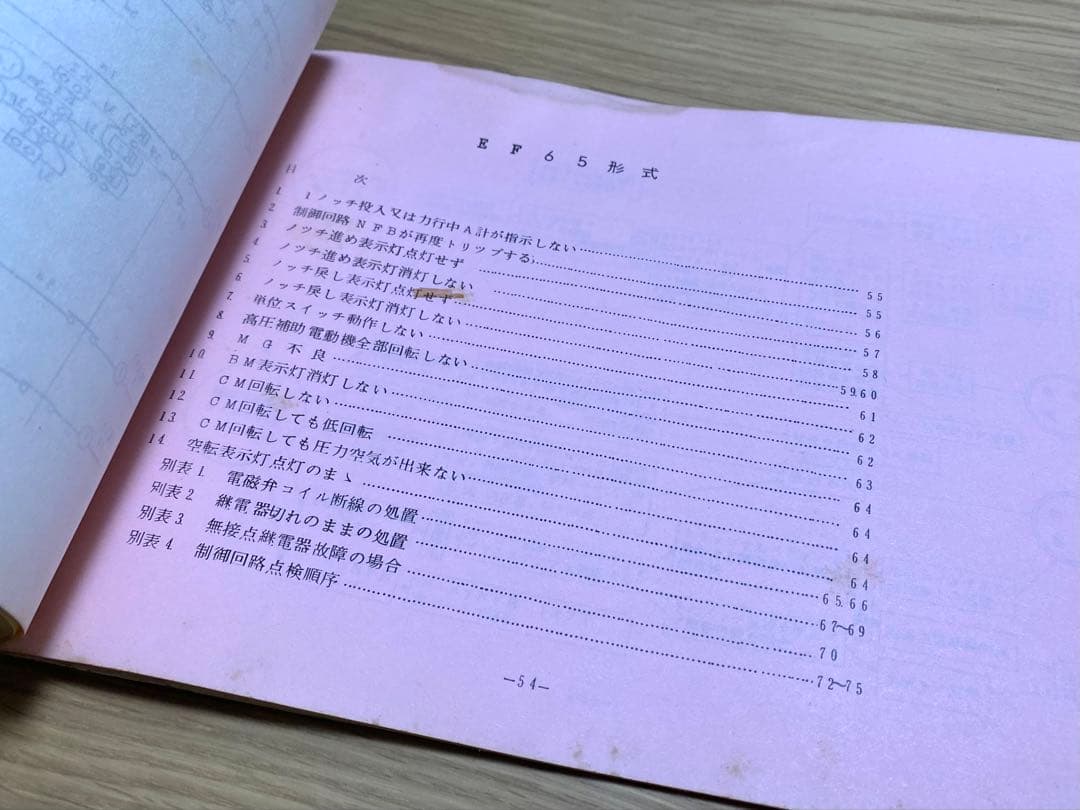 EF65形式
目次
1. 1ノッチ投入又は力行中A計が指示しない……55
2. 制御回路NFBが再度トリップする……55
3. ノッチ進め表示灯点灯せず……56
4. ノッチ進め表示灯消灯しない……57
5. ノッチ戻し表示灯点灯せず……58
6. ノッチ戻し表示灯消灯しない……59.60
7. 単位スイッチ動作しない……61
8. 高圧補助電動機全部回転しない……62
9. MG不良……62
10. BM表示灯消灯しない……63
11. CM回転しない……64
12. CM回転しても低回転……64
13. CM回転しても圧力空気が出来ない……64
14. 空転表示灯点灯のまゝ……64
別表1. 電磁弁コイル断線の処置……65.66
別表2. 継電器切れのままの処置……67〜69
別表3. 無接点継電器故障の場合……70
別表4. 制御回路点検順序……72〜75
—54—